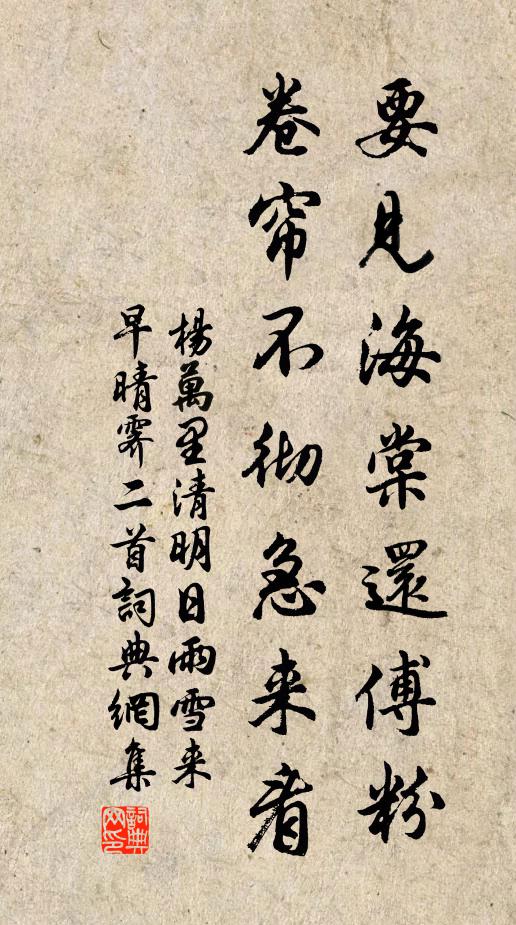 要見海棠還傅粉
卷帘不彻急来看
楊萬里清明日雨雪来
早晴霽二首詞典網集
詞典网印